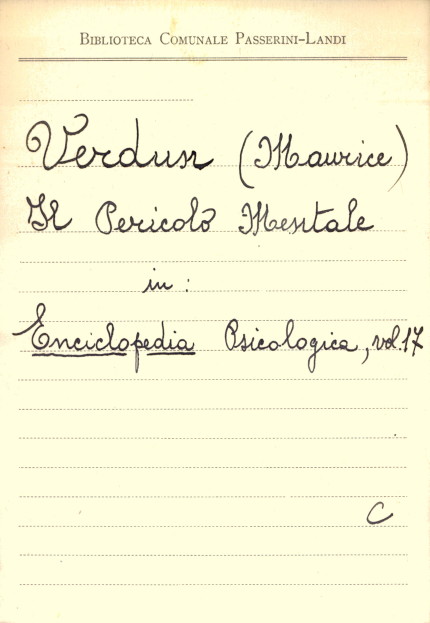 Biblioteca Comunale Passerini-Landi
Verdun (Maurice)
Il Pericolo Mentale
in:
Enciclopedia Psicologica, vol. 17
C